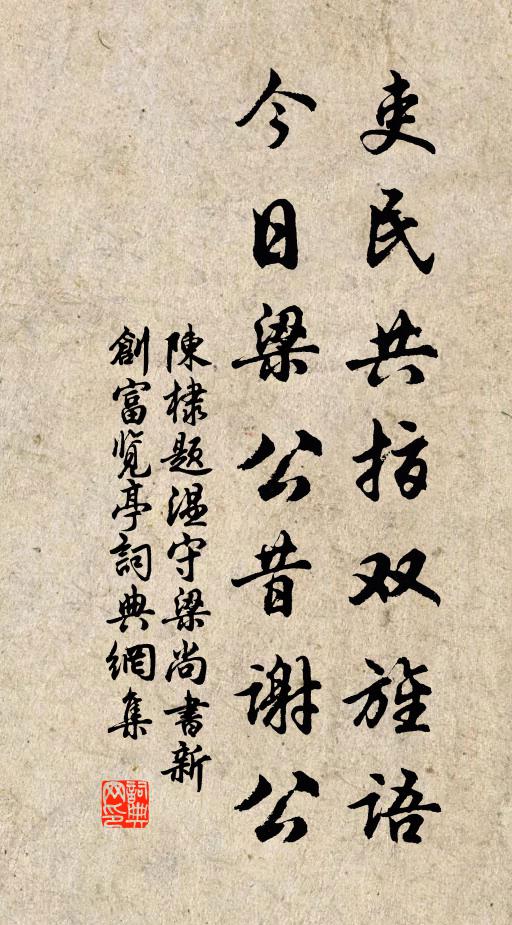 吏民共指双旌语
今日梁公昔谢公
陳棣题温守梁尚書新
創富览亭詞典網集
詞典
网印